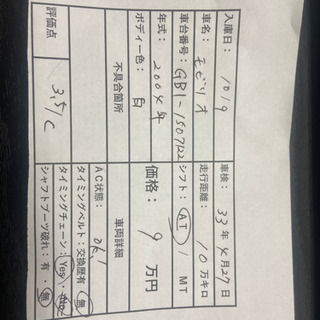 入庫日： 10/9
車検： 33年4月27日
車名： モビリオ
走行距離： 10万キロ
車台番号： GB1-1507122
シフト： AT / MT
年式： 2004年
価格： 9 万円
ボディー色： 白
車両詳細
不具合箇所
AC状態： ok!
タイミングベルト：交換歴有 ・ 無
タイミングチェーン： Yes
評価点 3.5/C
シャフトブーツ破れ：有 ・ 無